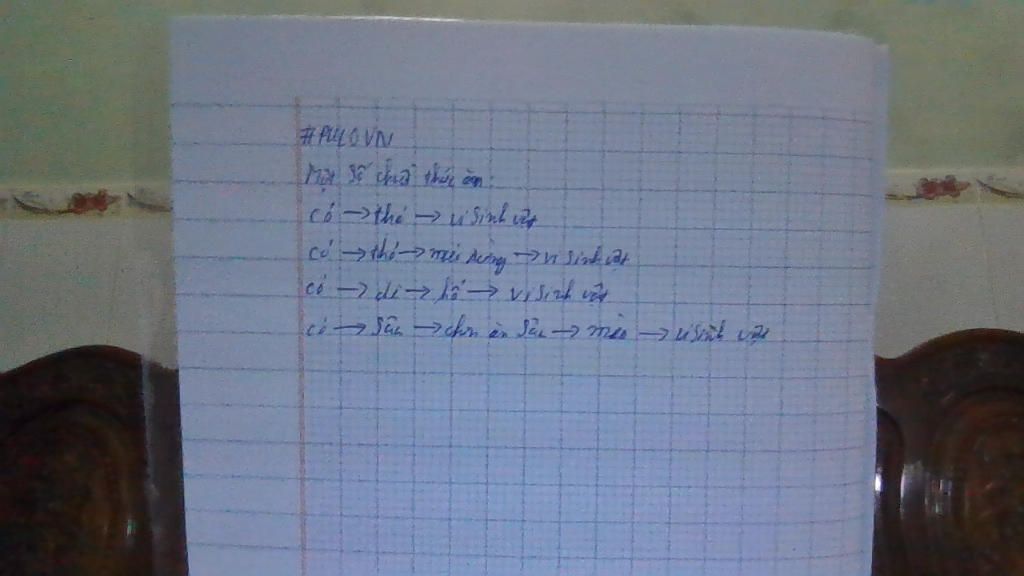 #PULOVN
Một số chuỗi thức ăn:
cỏ → thỏ → vi sinh vật
cỏ → thỏ → mèo rừng → vi sinh vật
cỏ → dê → hổ → vi sinh vật
cỏ → Sâu → chim ăn Sâu → mèo → vi sinh vật